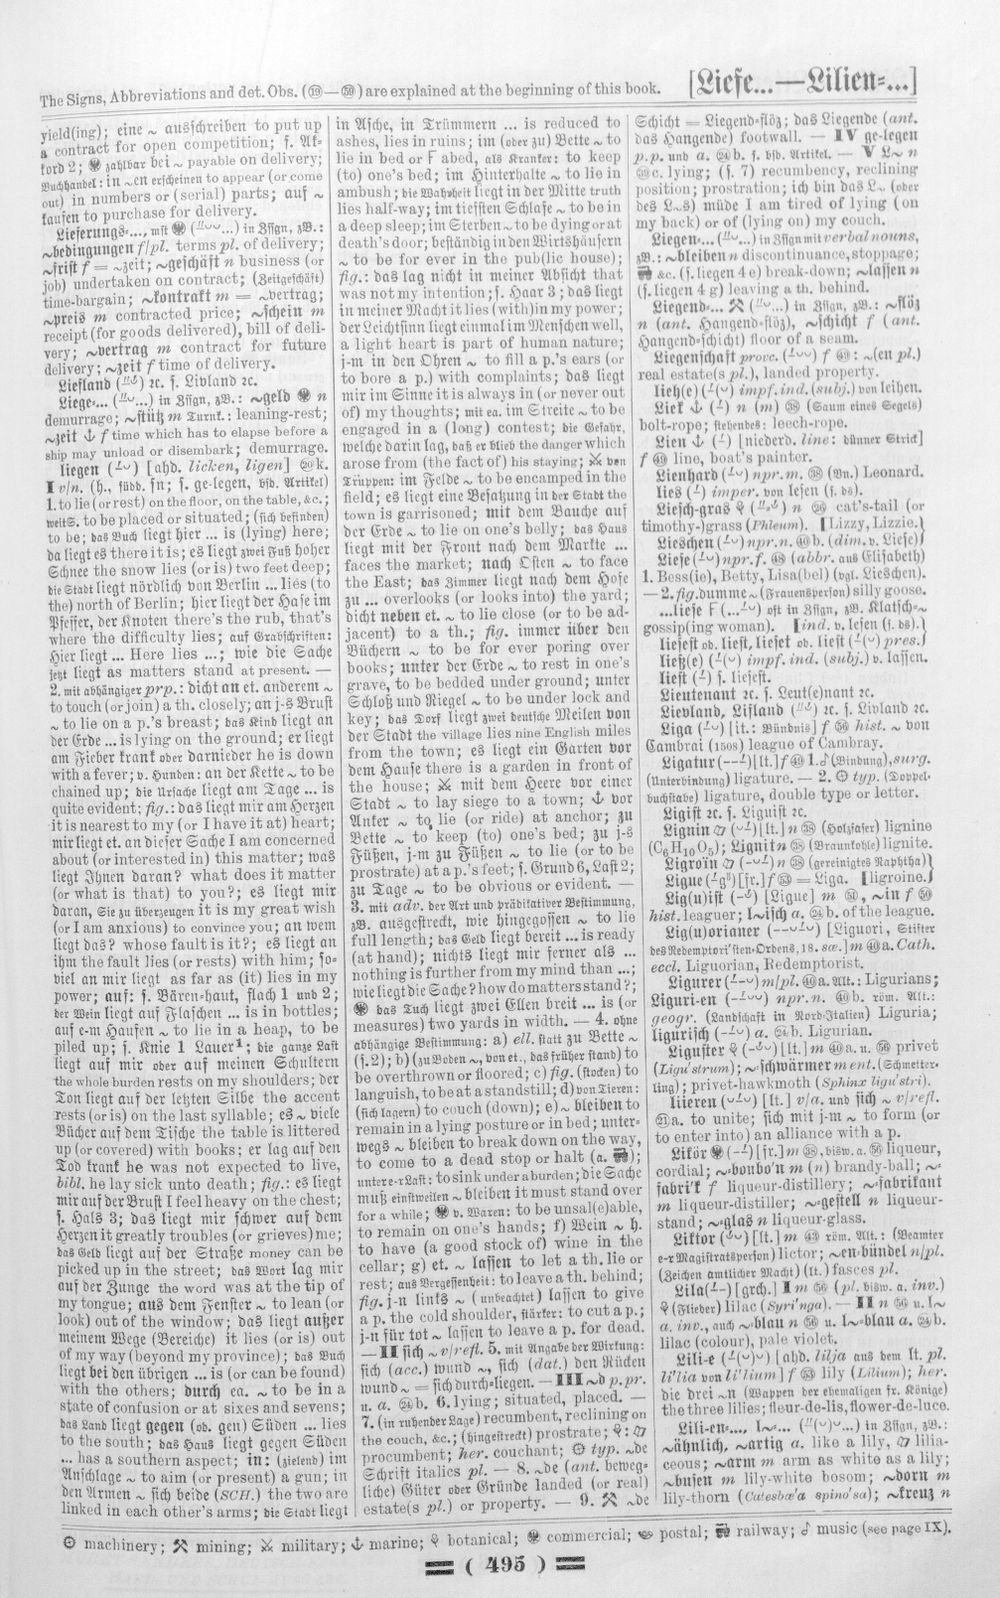 The Signs, Abbreviations and det. Obs. (⑲—㊿) are explained at the beginning of this book.
[Liefe...—Lilien-...]
yield(ing); eine ~ ausschreiben to put up
a contract for open competition; s. Ak-
kord 2; zahlbar bei ~ payable on delivery;
Buchhandel: in ~en erscheinen to appear (or come
out) in numbers or (serial) parts; auf ~
kaufen to purchase for delivery.
Lieferungs-..., mst (...) in Zssgn, zB.:
~bedingungen f/pl. terms pl. of delivery;
~frist f = ~zeit; ~geschäft n business (or
job) undertaken on contract; (Zeitgeschäft)
time-bargain; ~kontrakt m = ~vertrag;
~preis m contracted price; ~schein m
receipt (for goods delivered), bill of deli-
very; ~vertrag m contract for future
delivery; ~zeit f time of delivery.
Liefland (...) 2c. s. Livland 2c.
Liege-... (...) in Zssgn, zB.: ~geld n
demurrage; ~stütz m Turnk.: leaning-rest;
~zeit ⚓ f time which has to elapse before a
ship may unload or disembark; demurrage.
liegen [ahd. licken, ligen] k.
I v/n. (h., südd. sn; s. ge-legen, bsd. Artikel)
1. to lie (or rest) on the floor, on the table, &c.;
weitS. to be placed or situated; (sich befinden)
to be; das Buch liegt hier ... is (lying) here;
da liegt es there it is; es liegt zwei Fuß hoher
Schnee the snow lies (or is) two feet deep;
die Stadt liegt nördlich von Berlin ... lies (to
the) north of Berlin; hier liegt der Hase im
Pfeffer, der Knoten there's the rub, that's
where the difficulty lies; auf Grabschriften:
Hier liegt ... Here lies ...; wie die Sache
jetzt liegt as matters stand at present. —
2. mit abhängiger prp.: dicht an et. anderem ~
to touch (or join) a th. closely; an j-s Brust
~ to lie on a p.'s breast; das Kind liegt an
der Erde ... is lying on the ground; er liegt
am Fieber krank oder darnieder he is down
with a fever; v. Hunden: an der Kette ~ to be
chained up; die Ursache liegt am Tage ... is
quite evident; fig.: das liegt mir am Herzen
it is nearest to my (or I have it at) heart;
mir liegt et. an dieser Sache I am concerned
about (or interested in) this matter; was
liegt Ihnen daran? what does it matter
(or what is that) to you?; es liegt mir
daran, Sie zu überzeugen it is my great wish
(or I am anxious) to convince you; an wem
liegt das? whose fault is it?; es liegt an
ihm the fault lies (or rests) with him; so-
viel an mir liegt as far as (it) lies in my
power; auf: s. Bären-haut, flach 1 und 2;
der Wein liegt auf Flaschen ... is in bottles;
auf e-m Haufen ~ to lie in a heap, to be
piled up; s. Knie 1 Lauer¹; die ganze Last
liegt auf mir oder auf meinen Schultern
the whole burden rests on my shoulders; der
Ton liegt auf der letzten Silbe the accent
rests (or is) on the last syllable; es ~ viele
Bücher auf dem Tische the table is littered
up (or covered) with books; er lag auf den
Tod krank he was not expected to live,
bibl. he lay sick unto death; fig.: es liegt
mir auf der Brust I feel heavy on the chest;
s. Hals 3; das liegt mir schwer auf dem
Herzen it greatly troubles (or grieves) me;
das Geld liegt auf der Straße money can be
picked up in the street; das Wort lag mir
auf der Zunge the word was at the tip of
my tongue; aus dem Fenster ~ to lean (or
look) out of the window; das liegt außer
meinem Wege (Bereiche) it lies (or is) out
of my way (beyond my province); das Buch
liegt bei den übrigen ... is (or can be found)
with the others; durch ea. ~ to be in a
state of confusion or at sixes and sevens;
das Land liegt gegen (ob. gen) Süden ... lies
to the south; das Haus liegt gegen Süden
... has a southern aspect; in: (zielend) im
Anschlage ~ to aim (or present) a gun; in
den Armen ~ sich beide (SCH.) the two are
linked in each other's arms; die Stadt liegt
in Asche, in Trümmern ... is reduced to
ashes, lies in ruins; im (oder zu) Bette ~ to
lie in bed or F abed, als Kranker: to keep
(to) one's bed; im Hinterhalte ~ to lie in
ambush; die Wahrheit liegt in der Mitte truth
lies half-way; im tiefsten Schlafe ~ to be in
a deep sleep; im Sterben ~ to be dying or at
death's door; beständig in den Wirtshäusern
~ to be for ever in the pub(lic house);
fig.: das lag nicht in meiner Absicht that
was not my intention; s. Haar 3; das liegt
in meiner Macht it lies (with)in my power;
der Leichtsinn liegt einmal im Menschen well,
a light heart is part of human nature;
j-m in den Ohren ~ to fill a p.'s ears (or
to bore a p.) with complaints; das liegt
mir im Sinne it is always in (or never out
of) my thoughts; mit ea. im Streite ~ to be
engaged in a (long) contest; die Gefahr,
welche darin lag, daß er blieb the danger which
arose from (the fact of) his staying; ⚔ von
Truppen: im Felde ~ to be encamped in the
field; es liegt eine Besatzung in der Stadt the
town is garrisoned; mit dem Bauche auf
der Erde ~ to lie on one's belly; das Haus
liegt mit der Front nach dem Markte ...
faces the market; nach Osten ~ to face
the East; das Zimmer liegt nach dem Hofe
zu ... overlooks (or looks into) the yard;
dicht neben et. ~ to lie close (or to be ad-
jacent) to a th.; fig. immer über den
Büchern ~ to be for ever poring over
books; unter der Erde ~ to rest in one's
grave, to be bedded under ground; unter
Schloß und Riegel ~ to be under lock and
key; das Dorf liegt zwei deutsche Meilen von
der Stadt the village lies nine English miles
from the town; es liegt ein Garten vor
dem Hause there is a garden in front of
the house; ⚔ mit dem Heere vor einer
Stadt ~ to lay siege to a town; ⚓ vor
Anker ~ to lie (or ride) at anchor; zu
Bette ~ to keep (to) one's bed; zu j-s
Füßen, j-m zu Füßen ~ to lie (or to be
prostrate) at a p.'s feet; s. Grund 6, Last 2;
zu Tage ~ to be obvious or evident. —
3. mit adv. der Art und prädikativer Bestimmung,
zB. ausgestreckt, wie hingegossen ~ to lie
full length; das Geld liegt bereit ... is ready
(at hand); nichts liegt mir ferner als ...
nothing is further from my mind than ...;
wie liegt die Sache? how do matters stand?;
das Tuch liegt zwei Ellen breit ... is (or
measures) two yards in width. — 4. ohne
abhängige Bestimmung: a) ell. statt zu Bette ~
(s. 2); b) (zu Boden ~, von et., das früher stand) to
be overthrown or floored; c) fig. (stocken) to
languish, to be at a standstill; d) von Tieren:
(sich lagern) to couch (down); e) ~ bleiben to
remain in a lying posture or in bed; unter-
wegs ~ bleiben to break down on the way,
to come to a dead stop or halt (a. 🚂);
unter e-r Last: to sink under a burden; die Sache
muß einstweilen ~ bleiben it must stand over
for a while; v. Waren: to be unsal(e)able,
to remain on one's hands; f) Wein ~ h.
to have (a good stock of) wine in the
cellar; g) et. ~ lassen to let a th. lie or
rest; aus Vergessenheit: to leave a th. behind;
fig. j-n links ~ (unbeachtet) lassen to give
a p. the cold shoulder, stärker: to cut a p.;
j-n für tot ~ lassen to leave a p. for dead.
— II sich ~ v/refl. 5. mit Angabe der Wirkung:
sich (acc.) wund ~, sich (dat.) den Rücken
wund ~ = sich durch-liegen. — III ~d p.pr.
u. a. b. 6. lying; situated, placed. —
7. (in ruhender Lage) recumbent, reclining on
the couch, &c.; (hingestreckt) prostrate; ⚘:
procumbent; her. couchant; ⚙ typ. ~de
Schrift italics pl. — 8. ~de (ant. beweg-
liche) Güter oder Gründe landed (or real)
estate(s pl.) or property. — 9. ⚒ ~de
Schicht = Liegend-flöz; das Liegende (ant.
das Hangende) footwall. — IV ge-legen
p.p. und a. b. s. bsd. Artikel. — V L~ n
c. lying; (s. 7) recumbency, reclining
position; prostration; ich bin das L~ (oder
des L~s) müde I am tired of lying (on
my back) or of (lying on) my couch.
Liegen-... (...) in Zssgn mit verbal nouns,
zB.: ~bleiben n discontinuance, stoppage;
🚂 &c. (s. liegen 4 e) break-down; ~lassen n
(s. liegen 4 g) leaving a th. behind.
Liegend-... ⚒ (...) in Zssgn, zB.: ~flöz
n (ant. Hangend-flöz), ~schicht f (ant.
Hangend-schicht) floor of a seam.
Liegenschaft provc. f: ~(en pl.)
real estate(s pl.), landed property.
lieh(e) impf. ind. (subj.) von leihen.
Liek ⚓ n (m) (Saum eines Segels)
bolt-rope; stehendes: leech-rope.
Lien ⚓ [niederd. line: dünner Strick]
f line, boat's painter.
Lienhard npr. m. (Vn.) Leonard.
lies imper. von lesen (s. ds).
Liesch-gras ⚘ n cat's-tail (or
timothy-)grass (Phleum). [Lizzy, Lizzie.]
Lieschen npr. n. b. (dim. v. Liese)
Liese npr. f. (abbr. aus Elisabeth)
1. Bess(ie), Betty, Lisa(bel) (vgl. Lieschen).
— 2. fig. dumme ~ (Frauensperson) silly goose.
...liese F (...) oft in Zssgn, zB. Klatsch-~
gossip(ing woman). [ind. v. lesen (s. ds).]
liesest ob. liest, lieset ob. liest pres.
ließ(e) impf. ind. (subj.) v. lassen.
liest s. liesest.
Lieutenant 2c. s. Leut(e)nant 2c.
Lievland, Lifland 2c. s. Livland 2c.
Liga [it.: Bündnis] f hist. ~ von
Cambrai (1508) league of Cambray.
Ligatur [lt.] f 1. ♪ (Bindung), surg.
(Unterbindung) ligature. — 2. ⚙ typ. (Doppel-
buchstabe) ligature, double type or letter.
Ligist 2c. s. Liguist 2c.
Lignin [lt.] n (Holzfaser) lignine
(C₆H₁₀O₅); Lignitn (Braunkohle) lignite.
Ligroïn n (gereinigtes Naphtha)
Ligue [fr.] f = Liga. [ligroine.]
Lig(u)ist [Ligue] m, ~in f
hist. leaguer; l~isch a. b. of the league.
Lig(u)orianer [Liguori, Stifter
des Redemptori'sten-Ordens, 18. sæ.] m a. Cath.
eccl. Liguorian, Redemptorist.
Ligurer m/pl. a. Alt.: Ligurians;
Liguri-en npr. n. b. röm. Alt.:
geogr. (Landschaft in Nord-Italien) Liguria;
ligurisch a. b. Ligurian.
Liguster ⚘ [lt.] m a. u. privet
(Ligu'strum); ~-schwärmer m ent. (Schmetter-
ling); privet-hawkmoth (Sphinx ligu'stri).
liieren [lt.] v/a. und sich ~ v/refl.
a. to unite; sich mit j-m ~ to form (or
to enter into) an alliance with a p.
Likör [fr.] m, bisw. a. liqueur,
cordial; ~-bonbo'n m (n) brandy-ball; ~-
fabri'k f liqueur-distillery; ~-fabrikant
m liqueur-distiller; ~-gestell n liqueur-
stand; ~-glas n liqueur-glass.
Liktor [lt.] m röm. Alt.: (Beamter
e-r Magistratsperson) lictor; ~en-bündel n/pl.
(Zeichen amtlicher Macht) (lt.) fasces pl.
Lila [grch.] I m (pl. bisw. a. inv.)
⚘ (Flieder) lilac (Syri'nga). — II n u. l~
a. inv., auch ~-blau n u. l~-blau a. b.
lilac (colour), pale violet.
Lili-e [ahd. lilja aus dem lt. pl.
li'lia von li'lium] f lily (Lilium); her.
die drei ~n (Wappen der ehemaligen fr. Könige)
the three lilies; fleur-de-lis, flower-de-luce.
Lili-en-..., l~-... (...) in Zssgn, zB.:
~-ähnlich, ~-artig a. like a lily, lilia-
ceous; ~-arm m arm as white as a lily;
~-busen m lily-white bosom; ~-dorn m
lily-thorn (Catesbæ'a spino'sa); ~-kreuz n
⚙ machinery; ⚒ mining; ⚔ military; ⚓ marine; ⚘ botanical; commercial; postal; 🚂 railway; ♪ music (see page IX).
( 495 )